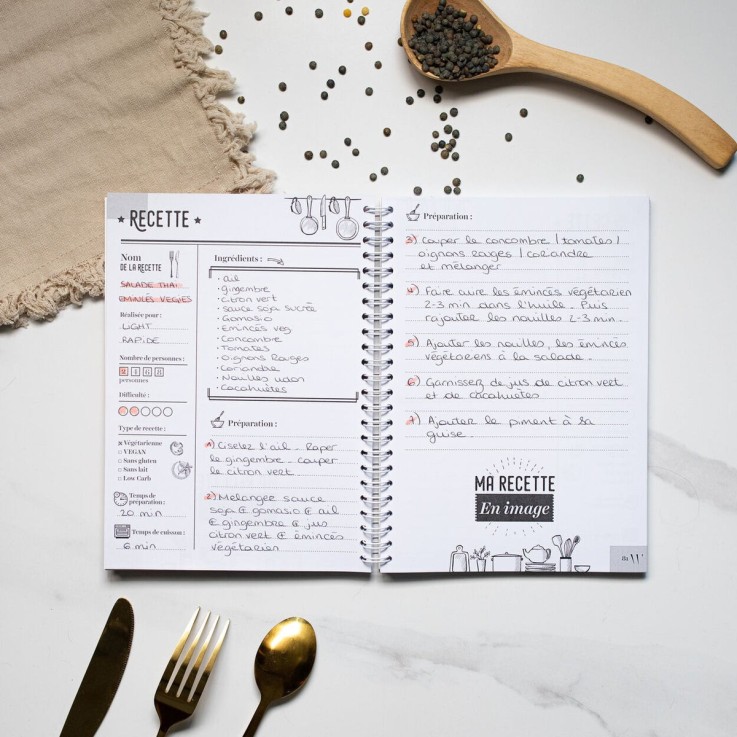 RECETTE
Nom
DE LA RECETTE
SALADE THAI
EMINCES VEGIES
Réalisée pour :
LIGHT
RAPIDE
Nombre de personnes :
2 4 6 8
personnes
Difficulté :
Type de recette :
Végétarienne
VEGAN
Sans gluten
Sans lait
Low Carb
Temps de
préparation :
20 min
Temps de cuisson :
6 min
Ingrédients :
· ail
· gingembre
· citron vert
· sauce soja sucrée
· Gomasio
· Emincés veg
· Concombre
· Tomates
· Oignons Rouges
· Coriandre
· Nouilles udon
· Cacahuètes
Préparation :
1) Ciselez l'ail - Raper
le gingembre - couper
le citron vert.
2) Melangée sauce
soja & gomasio & ail
& gingembre & jus
citron vert & émincés
végétarien
Préparation :
3) Couper le concombre / tomates /
oignons rouges / coriandre
et mélanger
4) Faire cuire les émincés végétarien
2-3 min dans l'huile. Puis
rajouter les nouilles 2-3 min.
5) Ajouter les nouilles, les émincés
végétariens à la salade.
6) Garnissez de jus de citron vert
et de cacahuètes
7) Ajouter le piment à sa
guise.
MA RECETTE
En image